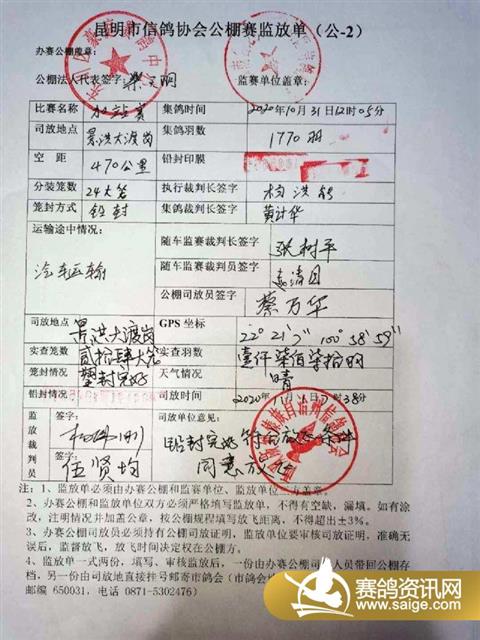 昆明市信鸽协会公棚赛监放单（公-2）
办赛公棚盖章：
公棚法人代表签字： 监赛单位盖章：
比赛名称 加站赛 集鸽时间 2020年10月31日12时05分
司放地点 景洪大渡岗 集鸽羽数 1770羽
空 距 470公里 铅封印膜
分装笼数 24大笼 执行裁判长签字
笼封方式 铅封 集鸽裁判长签字 黄计华
运输途中情况： 随车监赛裁判长签字 张树平
汽车运输 随车监赛裁判员签字
公棚司放员签字 蔡万华
司放地点 景洪大渡岗 GPS 坐标 22° 21′ 7″ 100° 58′ 59″
实查笼数 贰拾肆大笼 实查羽数 壹仟柒佰柒拾羽
笼封情况 塑封完好 天气情况 晴
铅封情况 司放时间 2020年11月1日7时38分
监放裁判员 签字： 司放单位意见：
铅封完好 符合放飞条件
签字： 伍贤均 同意放飞
注：1、监放单必须由办赛公棚和监赛单位、监放单位三方盖章。
2、办赛公棚和监放单位双方必须严格填写监放单，不得有空缺，漏填。如有涂
改，注明情况并加盖公章，按公棚规程填写放飞距离，不得超出±3%。
3、办赛公棚司放员必须持有公棚司放证明，监放单位要审核司放证明，准确无
误后，监督放飞，放飞时间决定权在公棚方。
4、监放单一式两份，填写、审核监放后，一份由办赛公棚司放人员带回公棚存
档，另一份由司放地直接挂号邮寄市鸽会（市鸽会
邮编 650031，电话 0871-5302476）
赛鸽资讯网
www.saige.com